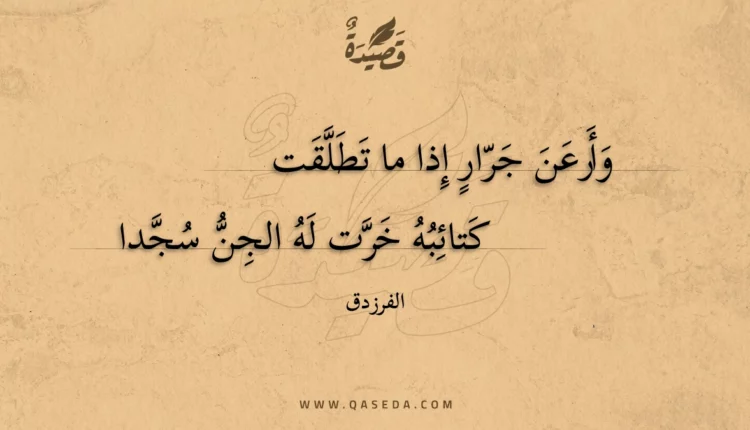 قَصِيْدَةٌ
وَأَرعَنَ جَرّارٍ إِذا ما تَطَلَّقَت
كَتائِبُهُ خَرَّت لَهُ الجِنُّ سُجَّدا
الفرزدق
WWW.QASEDA.COM